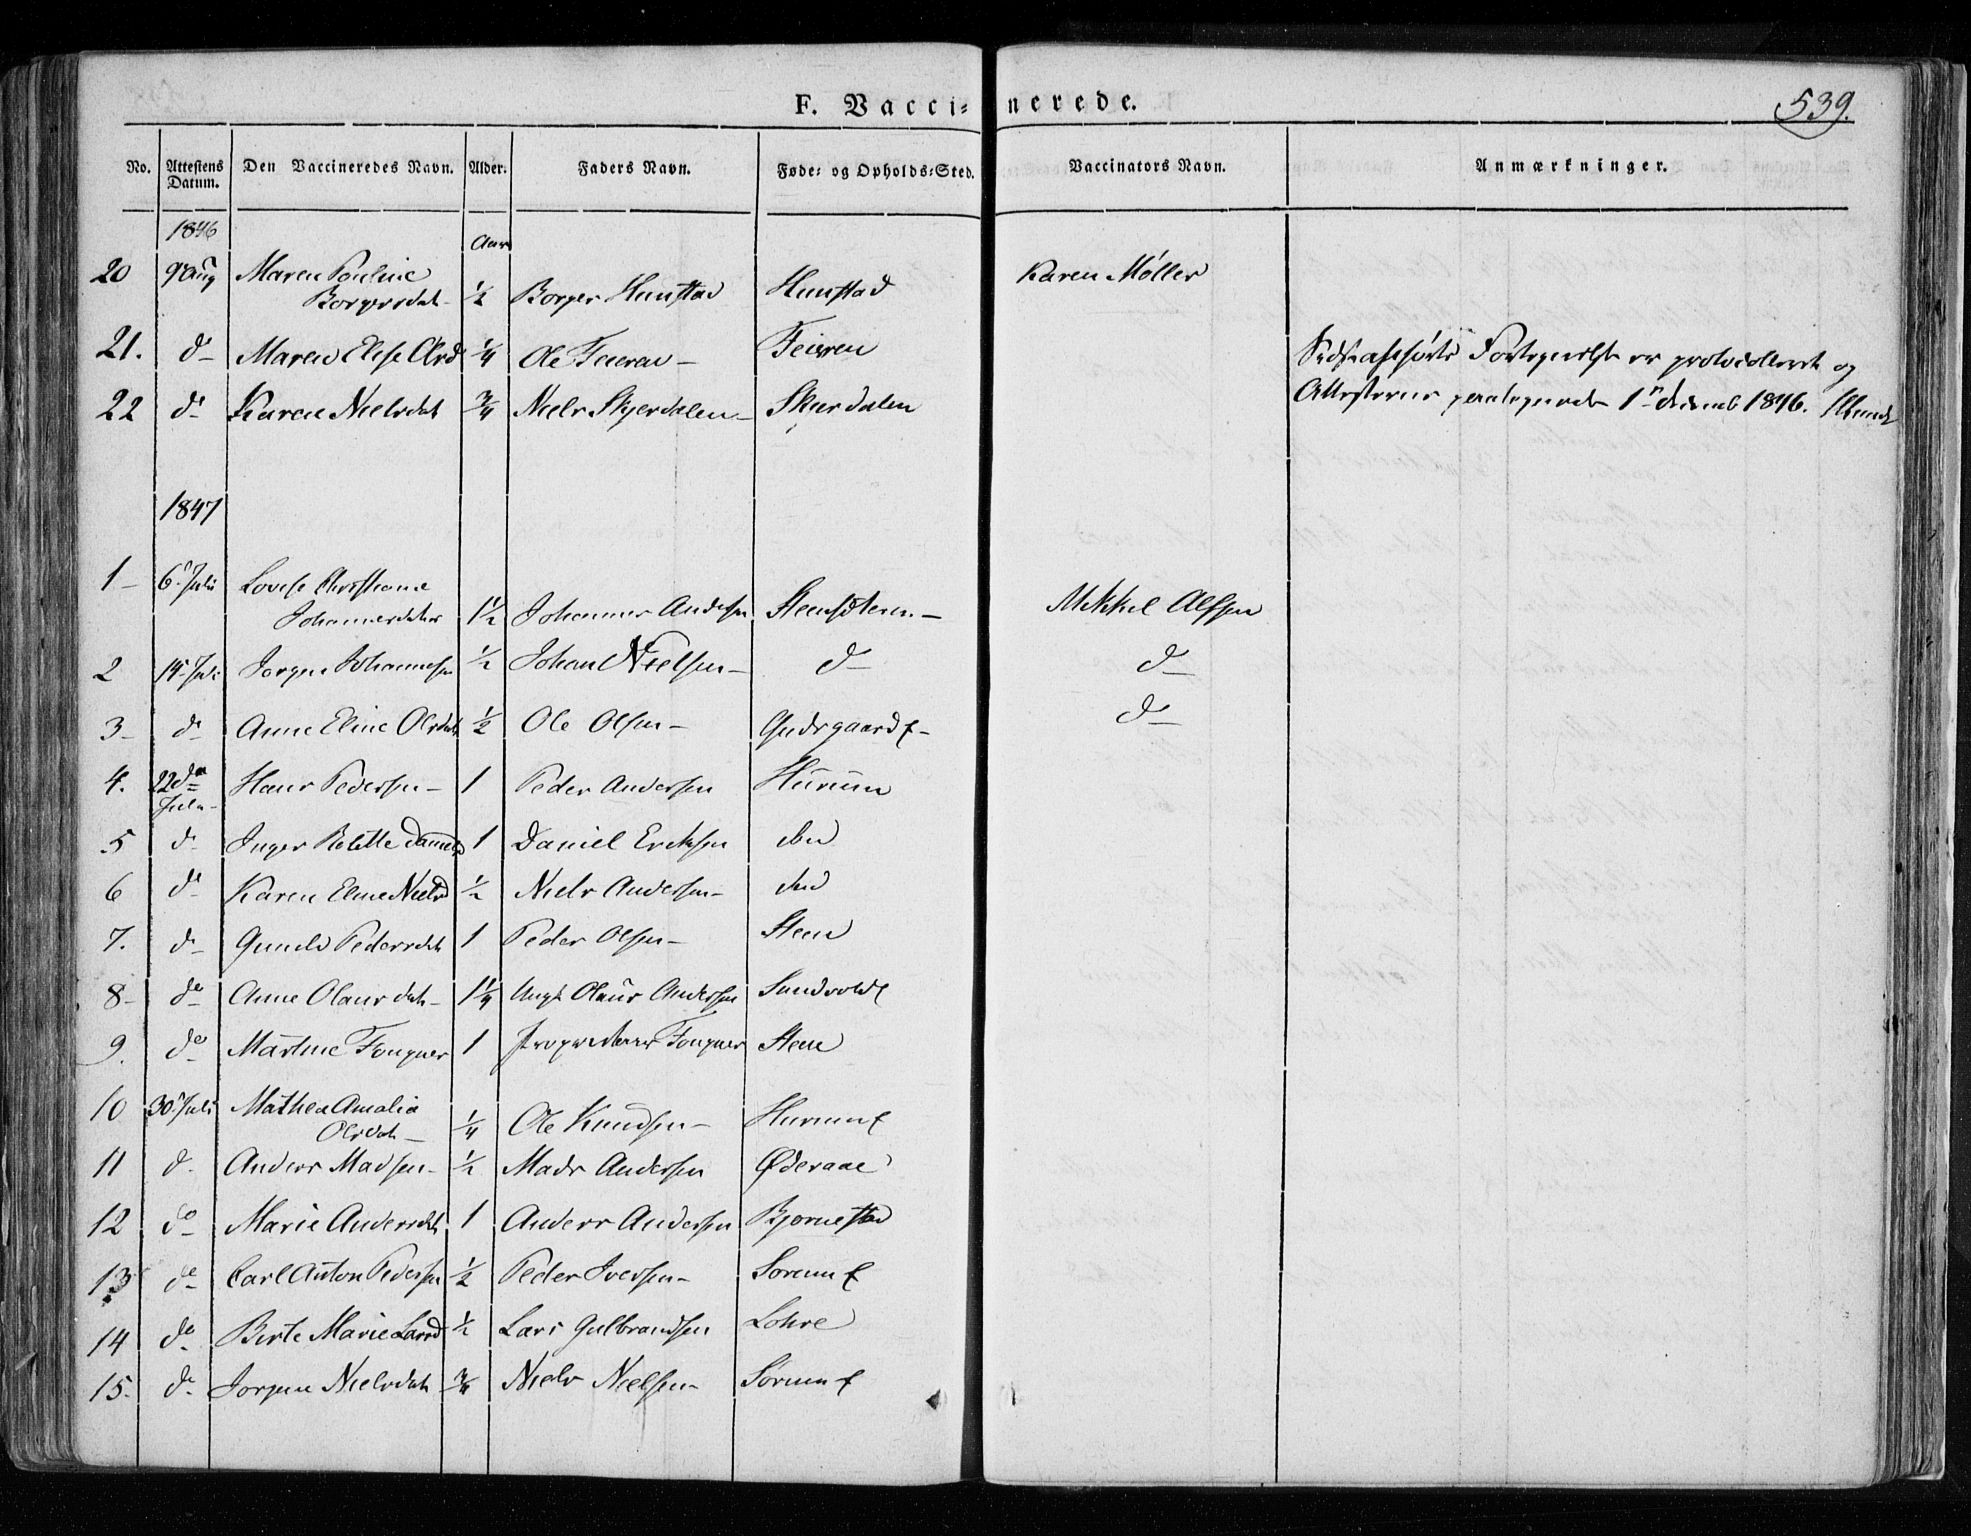 F. Vaccinerede.
539.
No. Attestens Datum. Den Vaccineredes Navn. Alder. Faders Navn. Føde- og Opholds-Sted. Vaccinators Navn. Anmærkninger.
1846
Aar
20 9 Aug Maren Pouline
Borgersdat ½ Borger Hunstad Hunstad Karen Møller
21. do Maren Elise Olsd ¼ Ole Feieren Feieren
22 do Karen Nielsdat ¾ Niels Skjerdalen Skjerdalen
Fortegnelse er protocolleret og
Attesterne 1846.
1847
1 6 Juli Lovise Christiane
Johannesdatter 1½ Johannes Andersen Mikkel Alfsen
2 14 Juli Jørgen Johannesen ½ Johan Nielsen do do
3 do Anne Eline Olsdat ½ Ole Olsen do
4. 22de Juli Hans Pedersen 1 Peder Andersen Hurum
5 do Inger Danielsd 1 Daniel Ericksen
6 do Karen Eline Nielsd ½ Niels Andersen
7. do Gunild Pedersdat 1 Peder Olsen Steen
8 do Anne Olausdat 1¼ Ungk Olaus Andersen Sundvold
9. do Martine Fougner 1 Fougner Steen
10 30 Juli Mathea Amalia
Olsdat ¼ Ole Knudsen Hurum
11 do Anders Madsen ½ Mads Andersen Øderaae
12 do Marie Andersdat 1 Anders Andersen Bjørnestad
13 do Carl Anton Pedersen ½ Peder Iversen Sørum
14 do Birte Marie Larsd ½ Lars Gulbrandsen Lohre
15. do Jørgine Nielsdat ¾ Niels Nielsen Sørum